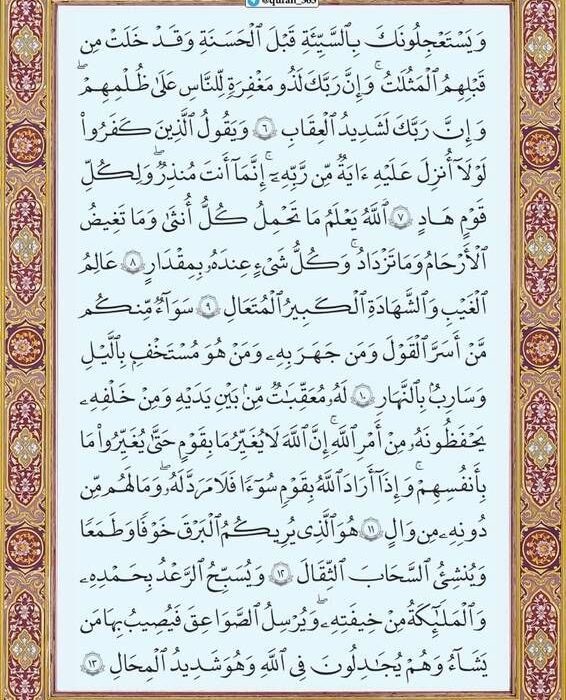 @quran_365
وَيَسْتَعْجِلُونَكَ بِٱلسَّيِّئَةِ قَبْلَ ٱلْحَسَنَةِ وَقَدْ خَلَتْ مِن
قَبْلِهِمُ ٱلْمَثُلَٰتُ ۗ وَإِنَّ رَبَّكَ لَذُو مَغْفِرَةٍ لِّلنَّاسِ عَلَىٰ ظُلْمِهِمْ ۖ
وَإِنَّ رَبَّكَ لَشَدِيدُ ٱلْعِقَابِ ٦ وَيَقُولُ ٱلَّذِينَ كَفَرُوا۟
لَوْلَآ أُنزِلَ عَلَيْهِ ءَايَةٌ مِّن رَّبِّهِۦٓ ۗ إِنَّمَآ أَنتَ مُنذِرٌ ۖ وَلِكُلِّ
قَوْمٍ هَادٍ ٧ ٱللَّهُ يَعْلَمُ مَا تَحْمِلُ كُلُّ أُنثَىٰ وَمَا تَغِيضُ
ٱلْأَرْحَامُ وَمَا تَزْدَادُ ۖ وَكُلُّ شَىْءٍ عِندَهُۥ بِمِقْدَارٍ ٨ عَٰلِمُ
ٱلْغَيْبِ وَٱلشَّهَٰدَةِ ٱلْكَبِيرُ ٱلْمُتَعَالِ ٩ سَوَآءٌ مِّنكُم
مَّنْ أَسَرَّ ٱلْقَوْلَ وَمَن جَهَرَ بِهِۦ وَمَنْ هُوَ مُسْتَخْفٍۭ بِٱلَّيْلِ
وَسَارِبٌۢ بِٱلنَّهَارِ ١٠ لَهُۥ مُعَقِّبَٰتٌ مِّنۢ بَيْنِ يَدَيْهِ وَمِنْ خَلْفِهِۦ
يَحْفَظُونَهُۥ مِنْ أَمْرِ ٱللَّهِ ۗ إِنَّ ٱللَّهَ لَا يُغَيِّرُ مَا بِقَوْمٍ حَتَّىٰ يُغَيِّرُوا۟ مَا
بِأَنفُسِهِمْ ۗ وَإِذَآ أَرَادَ ٱللَّهُ بِقَوْمٍ سُوٓءًا فَلَا مَرَدَّ لَهُۥ ۚ وَمَا لَهُم مِّن
دُونِهِۦ مِن وَالٍ ١١ هُوَ ٱلَّذِى يُرِيكُمُ ٱلْبَرْقَ خَوْفًا وَطَمَعًا
وَيُنشِئُ ٱلسَّحَابَ ٱلثِّقَالَ ١٢ وَيُسَبِّحُ ٱلرَّعْدُ بِحَمْدِهِۦ
وَٱلْمَلَٰٓئِكَةُ مِنْ خِيفَتِهِۦ وَيُرْسِلُ ٱلصَّوَٰعِقَ فَيُصِيبُ بِهَا مَن
يَشَآءُ وَهُمْ يُجَٰدِلُونَ فِى ٱللَّهِ وَهُوَ شَدِيدُ ٱلْمِحَالِ ١٣